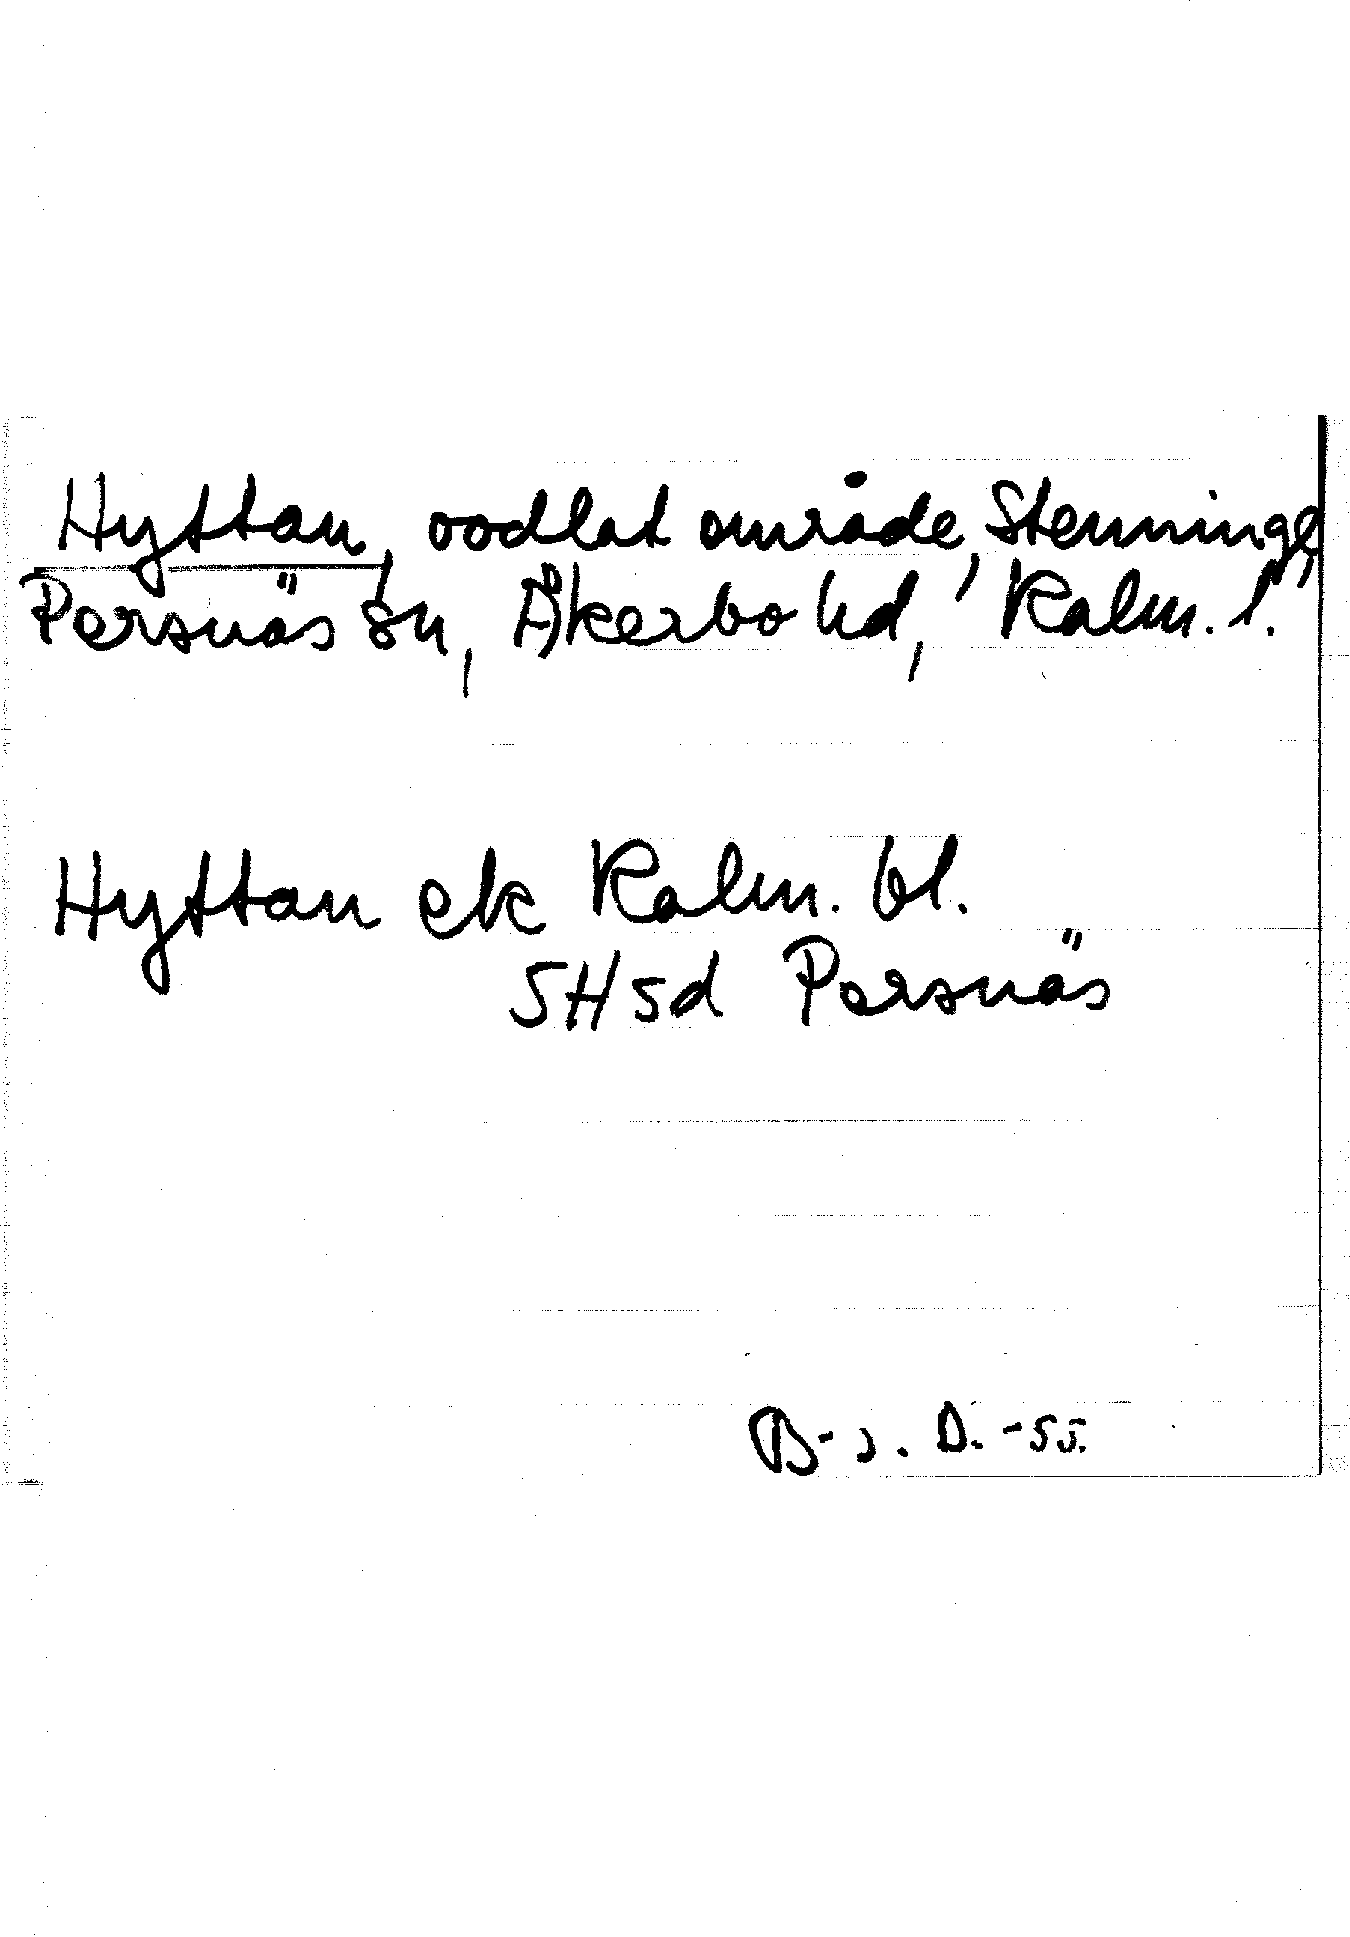 Hyttan, oodlat område, Stenninge,
Persnäs sn, Åkerbo hd, Kalm. l.
Hyttan ek Kalm. bl.
5H5d Persnäs
B-s. D. -55.